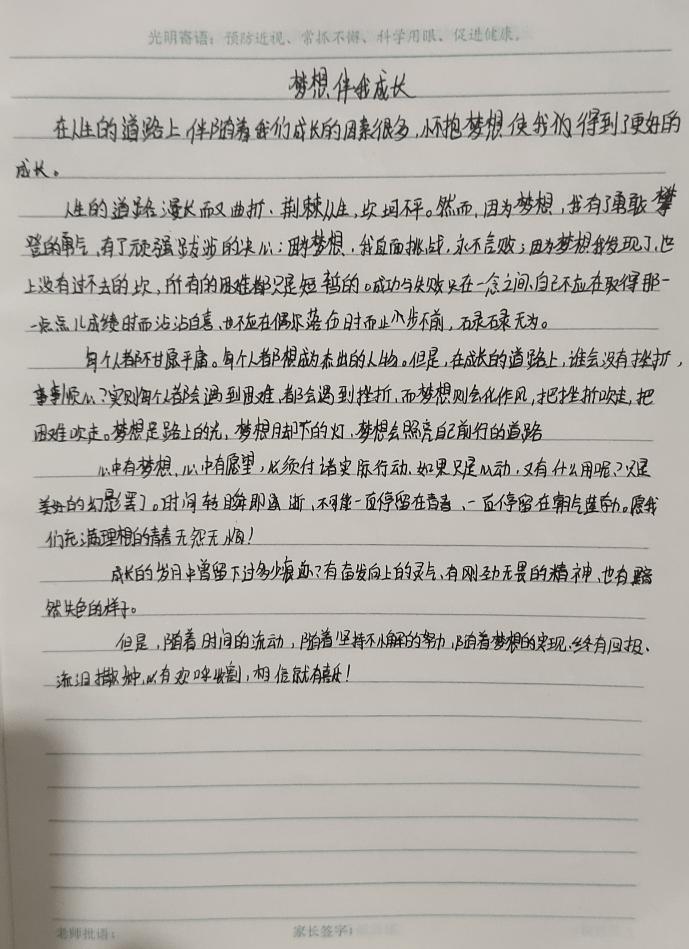 光明寄语：预防近视、常抓不懈、科学用眼、促进健康。
梦想伴我成长
在人生的道路上，伴随着我们成长的因素很多，怀抱梦想使我们得到了更好的
成长。
人生的道路漫长而又曲折，荆棘丛生，坎坷不平。然而，因为梦想，我有了勇敢攀
登的勇气，有了顽强跋涉的决心；因为梦想，我直面挑战，永不言败；因为梦想我发现了，世
上没有过不去的坎，所有的困难都只是短暂的。成功与失败只在一念之间，自己不应在取得那一
一点点儿成绩时而沾沾自喜，也不应在偶尔落伍时而止步不前，碌碌无为。
每个人都不甘愿平庸。每个人都想成为杰出的人物。但是，在成长的道路上，谁会没有挫折，
事事顺心？实则每个人都会遇到困难，都会遇到挫折，而梦想则会化作风，把挫折吹走，把
困难吹走。梦想是路上的光，梦想是脚下的灯，梦想会照亮自己前行的道路
心中有梦想，心中有愿望，必须付诸实际行动，如果只是心动，又有什么用呢？只是
美好的幻影罢了。时间转瞬即逝，不可能一直停留在青春，一直停留在朝气蓬勃。愿我
们充满理想的青春无怨无悔！
成长的岁月中曾留下过多少痕迹？有奋发向上的灵气，有刚劲无畏的精神，也有黯
然失色的样子。
但是，随着时间的流动，随着坚持不懈的努力，随着梦想的实现，终有回报、
流泪撒种，必有欢呼收割，相信就有
老师批语：
家长签字：